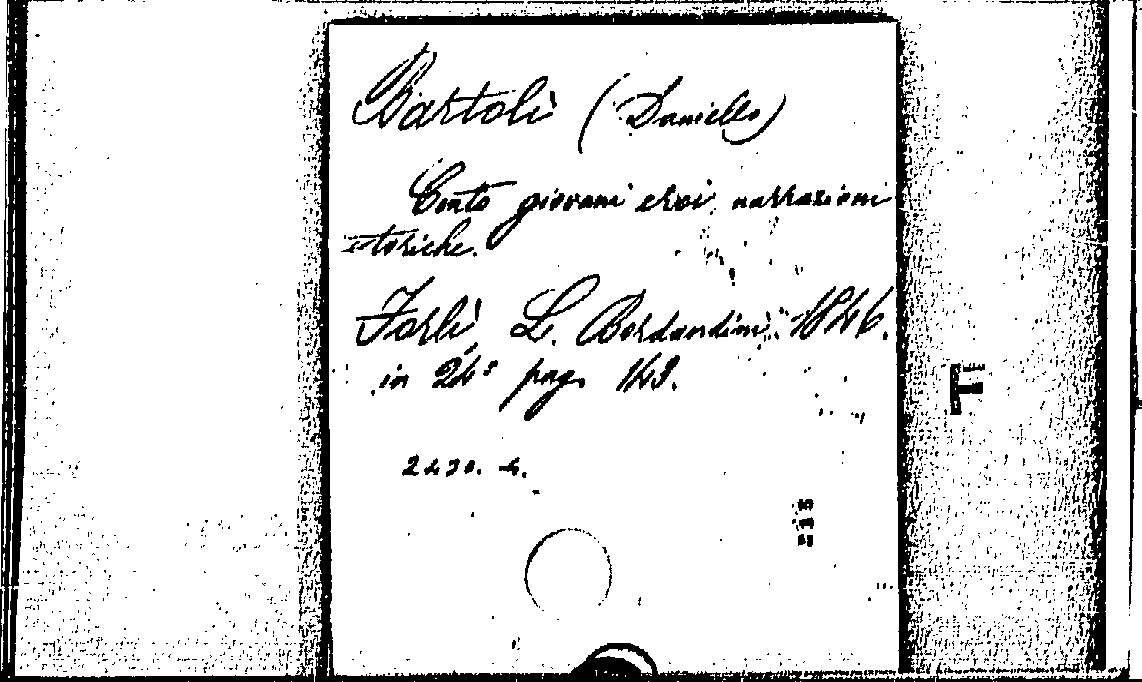 Bartoli (Daniello)
Cento giovani eroi, narrazioni
storiche.
Forlì, L. Bordandini. 1846.
in 24° pag. 149.
2430. 4.
F